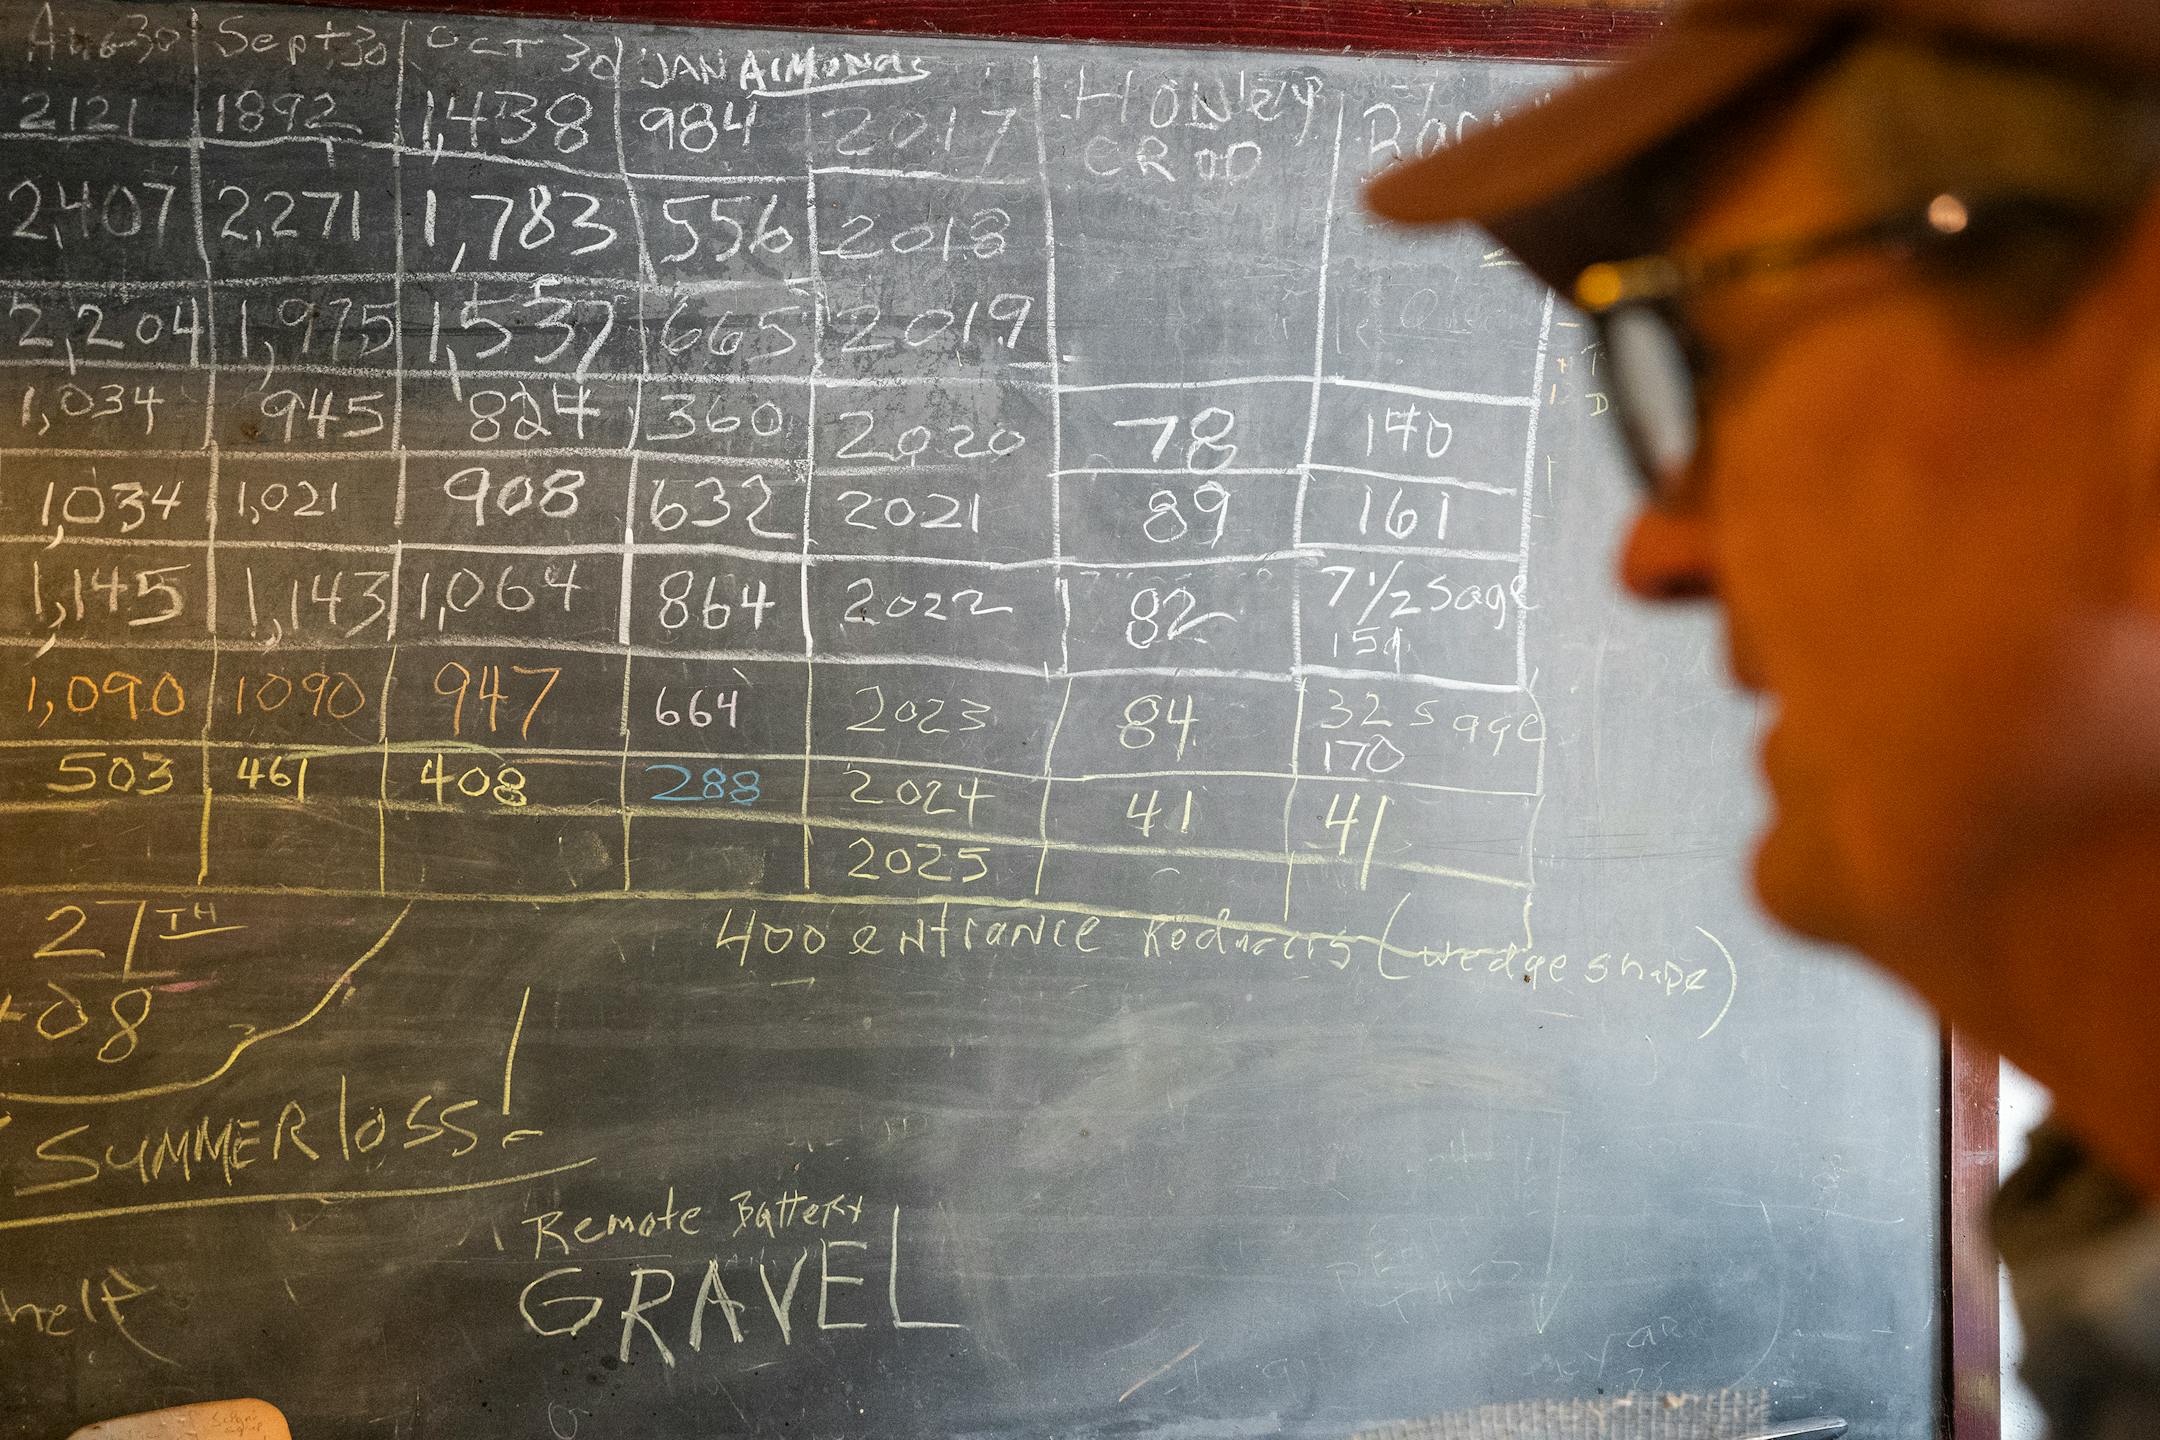 Aug 30 Sept 30 OCT 30 JAN AlMONds HONEY
CROP
2121 1892 1,438 984 2017
2,407 2,271 1,783 556 2018
2,204 1,975 1,537 665 2019
1,034 945 824 360 2020 78 140
1,034 1,021 908 632 2021 89 161
1,145 1,143 1,064 864 2022 82 7 1/2 sage
151
1,090 1090 947 664 2023 84 32 sage
170
503 461 408 288 2024 41 41
2025
400 entrance Reducers (wedge shape)
27TH
08
SUMMER loss!
Remote Battery
GRAVEL
help